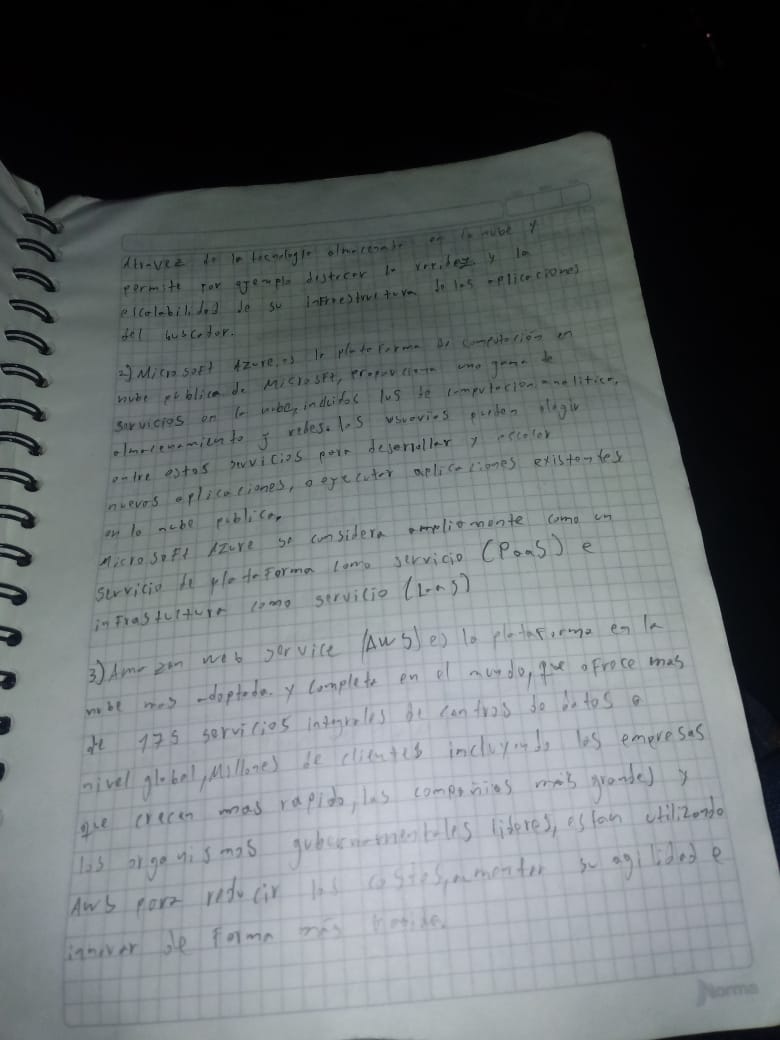 Atravez de la tecnologia almacenada en la nube y
permite por ejemplo destacar la y la
escalabilidad de su infraestructura de las aplicaciones
del buscador.
2) Microsoft Azure, es la plataforma de computación en
nube publica de Microsft, proporciona una gama de
servicios en la nube, incluidos los de computacion, analitica,
almacenamiento y redes. los usuarios pueden elegir
entre estos servicios para desarrollar y escalar
nuevas aplicaciones, o ejecutar aplicaciones existentes
en la nube publica.
Microsoft Azure se considera ampliamente como un
servicio de plataforma como servicio (PaaS) e
infrastultura como servicio (IaaS)
3) Amazon web service (AWS) es la plataforma en la
nube mas adoptada y completa en el mundo, que ofrece mas
de 175 servicios integrales de centros de datos a
nivel global, Millones de clientes incluyendo las empresas
que crecen mas rapido, las compañias más grandes y
los organismos gubernamentales lideres, estan utilizando
AWS para reducir los costes, aumentar su agilidad e
innovar de forma más rapida.
Norma